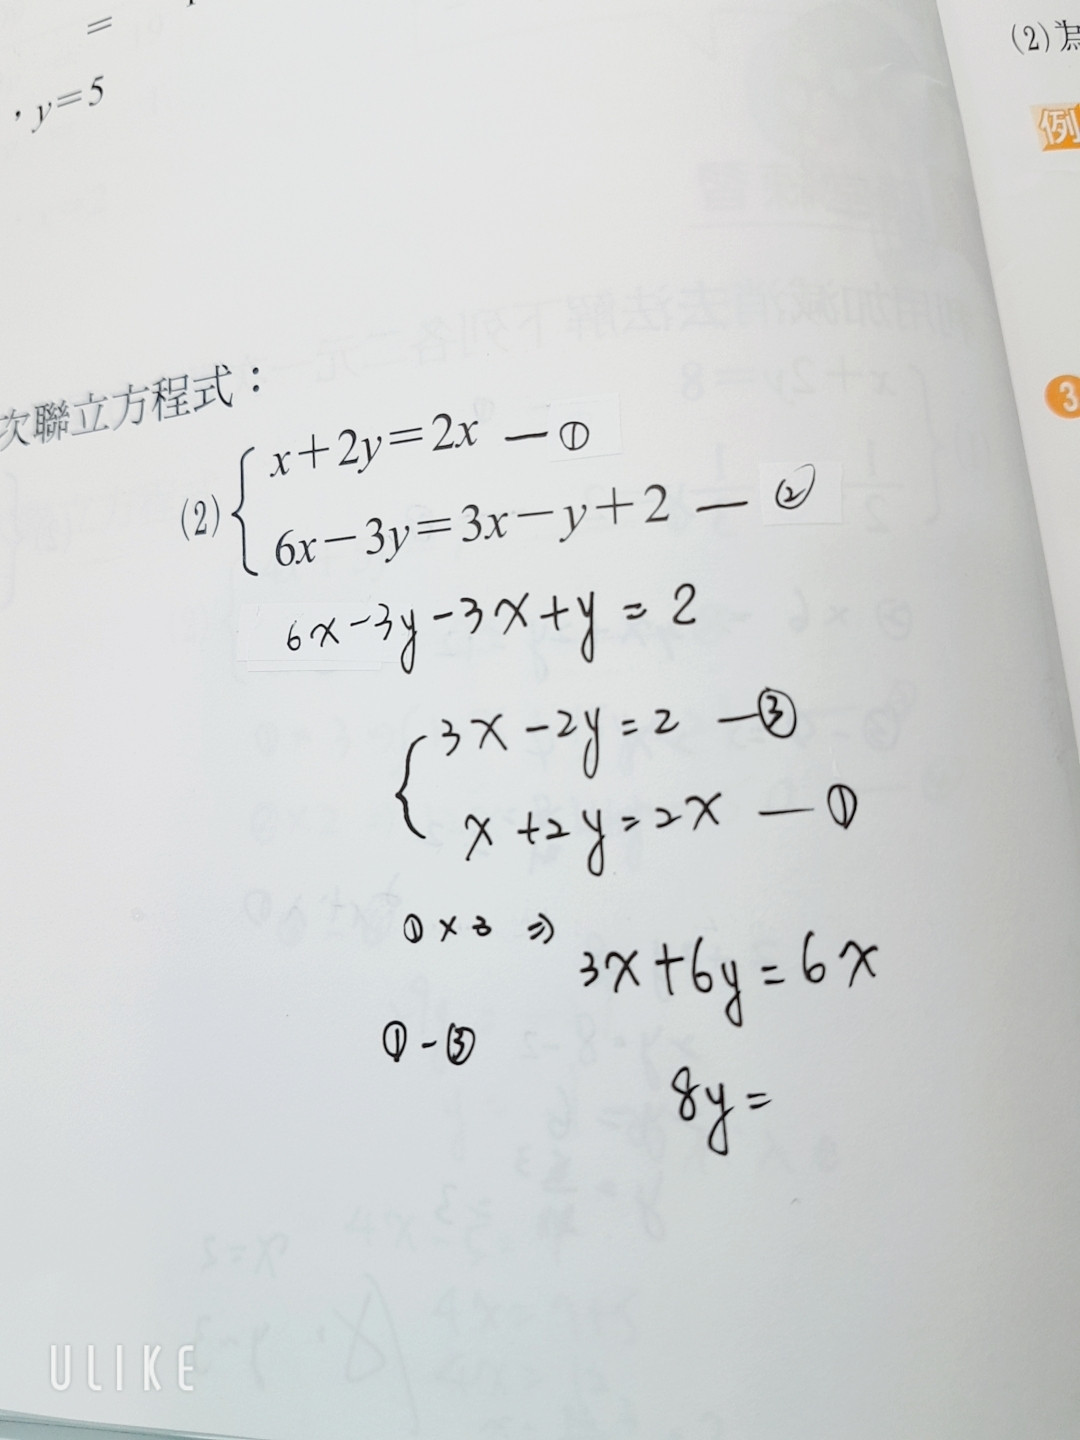 =
，y=5
(2)
例
3
次聯立方程式：
(2) { x+2y=2x —①
6x−3y=3x−y+2 —②
6x-3y-3x+y=2
{ 3x-2y=2 —③
x+2y=2x —①
①×3 ⇒ 3x+6y=6x
①-③
8y=
ULIKE